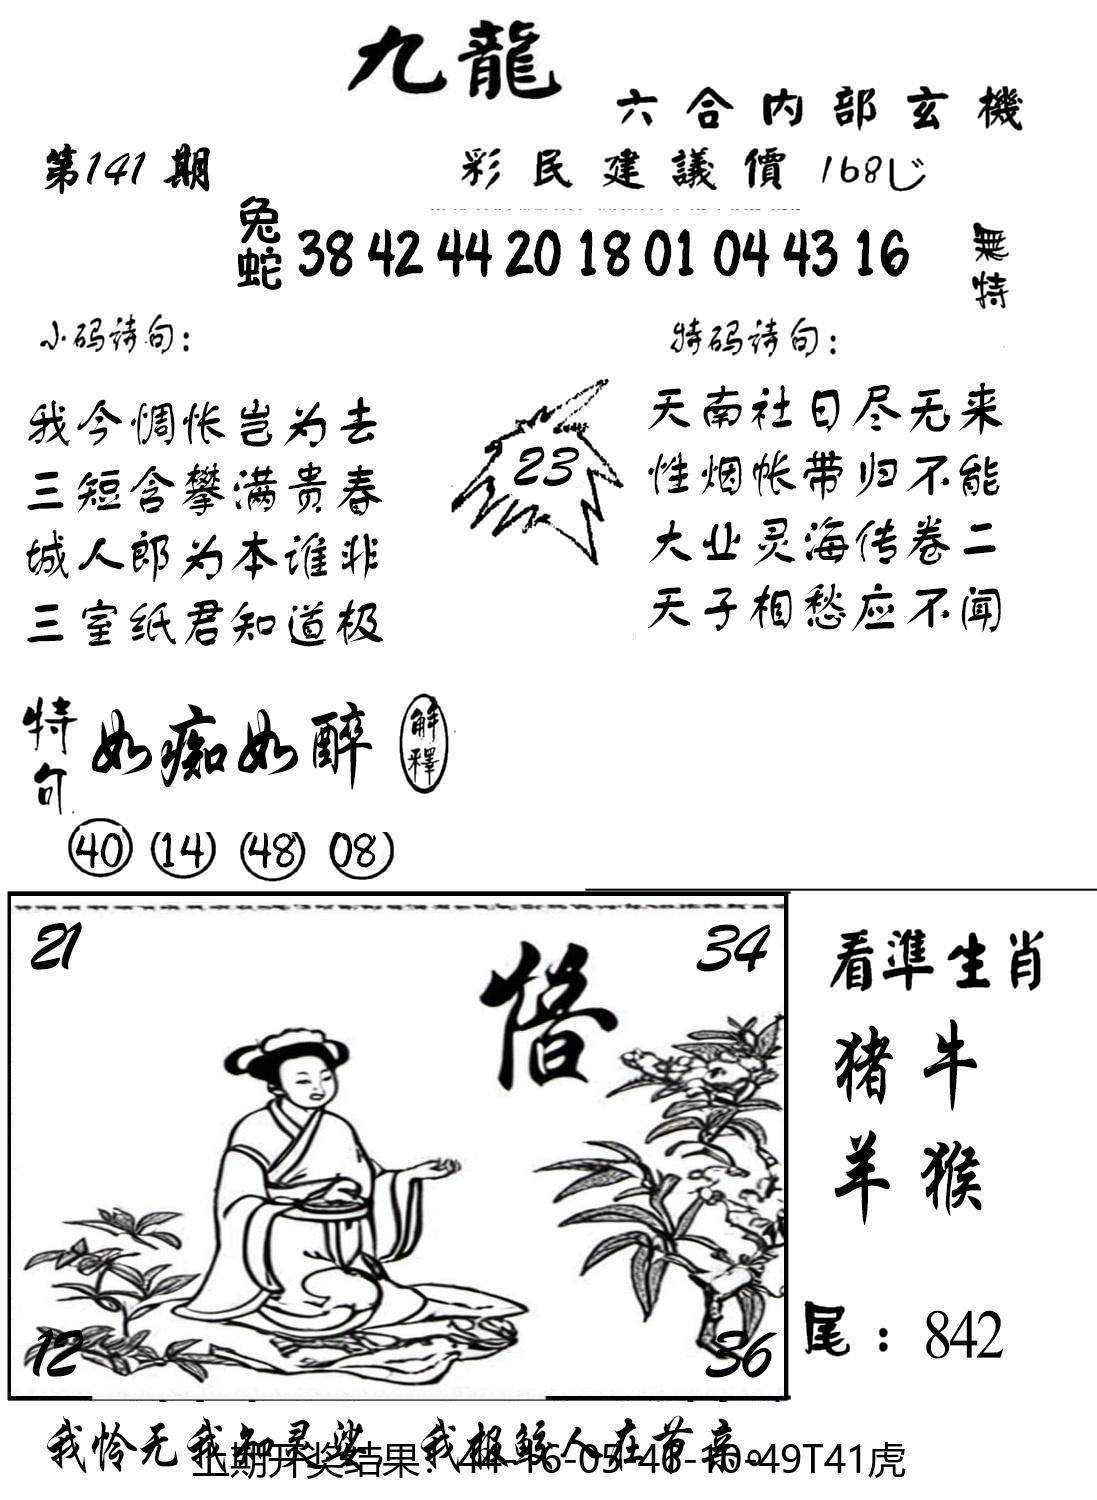 九龍
六合内部玄機
第141期
彩民建議價168
兔蛇 38 42 44 20 18 01 04 43 16
無特
小码诗句：
我今惆怅岂为去
三短含攀满贵春
城人郎为本谁非
三室纸君知道极
23
特码诗句：
天南社日尽无来
性烟帐带归不能
大业灵海传卷二
天子相愁应不闻
特句 如痴如醉 解釋
40 14 48 08
21
34
12
36
看準生肖
猪牛
羊猴
尾：842
我怜无我知灵娑 我极鲛人在
上期开奖结果：44-16-05-46-10-49T41虎